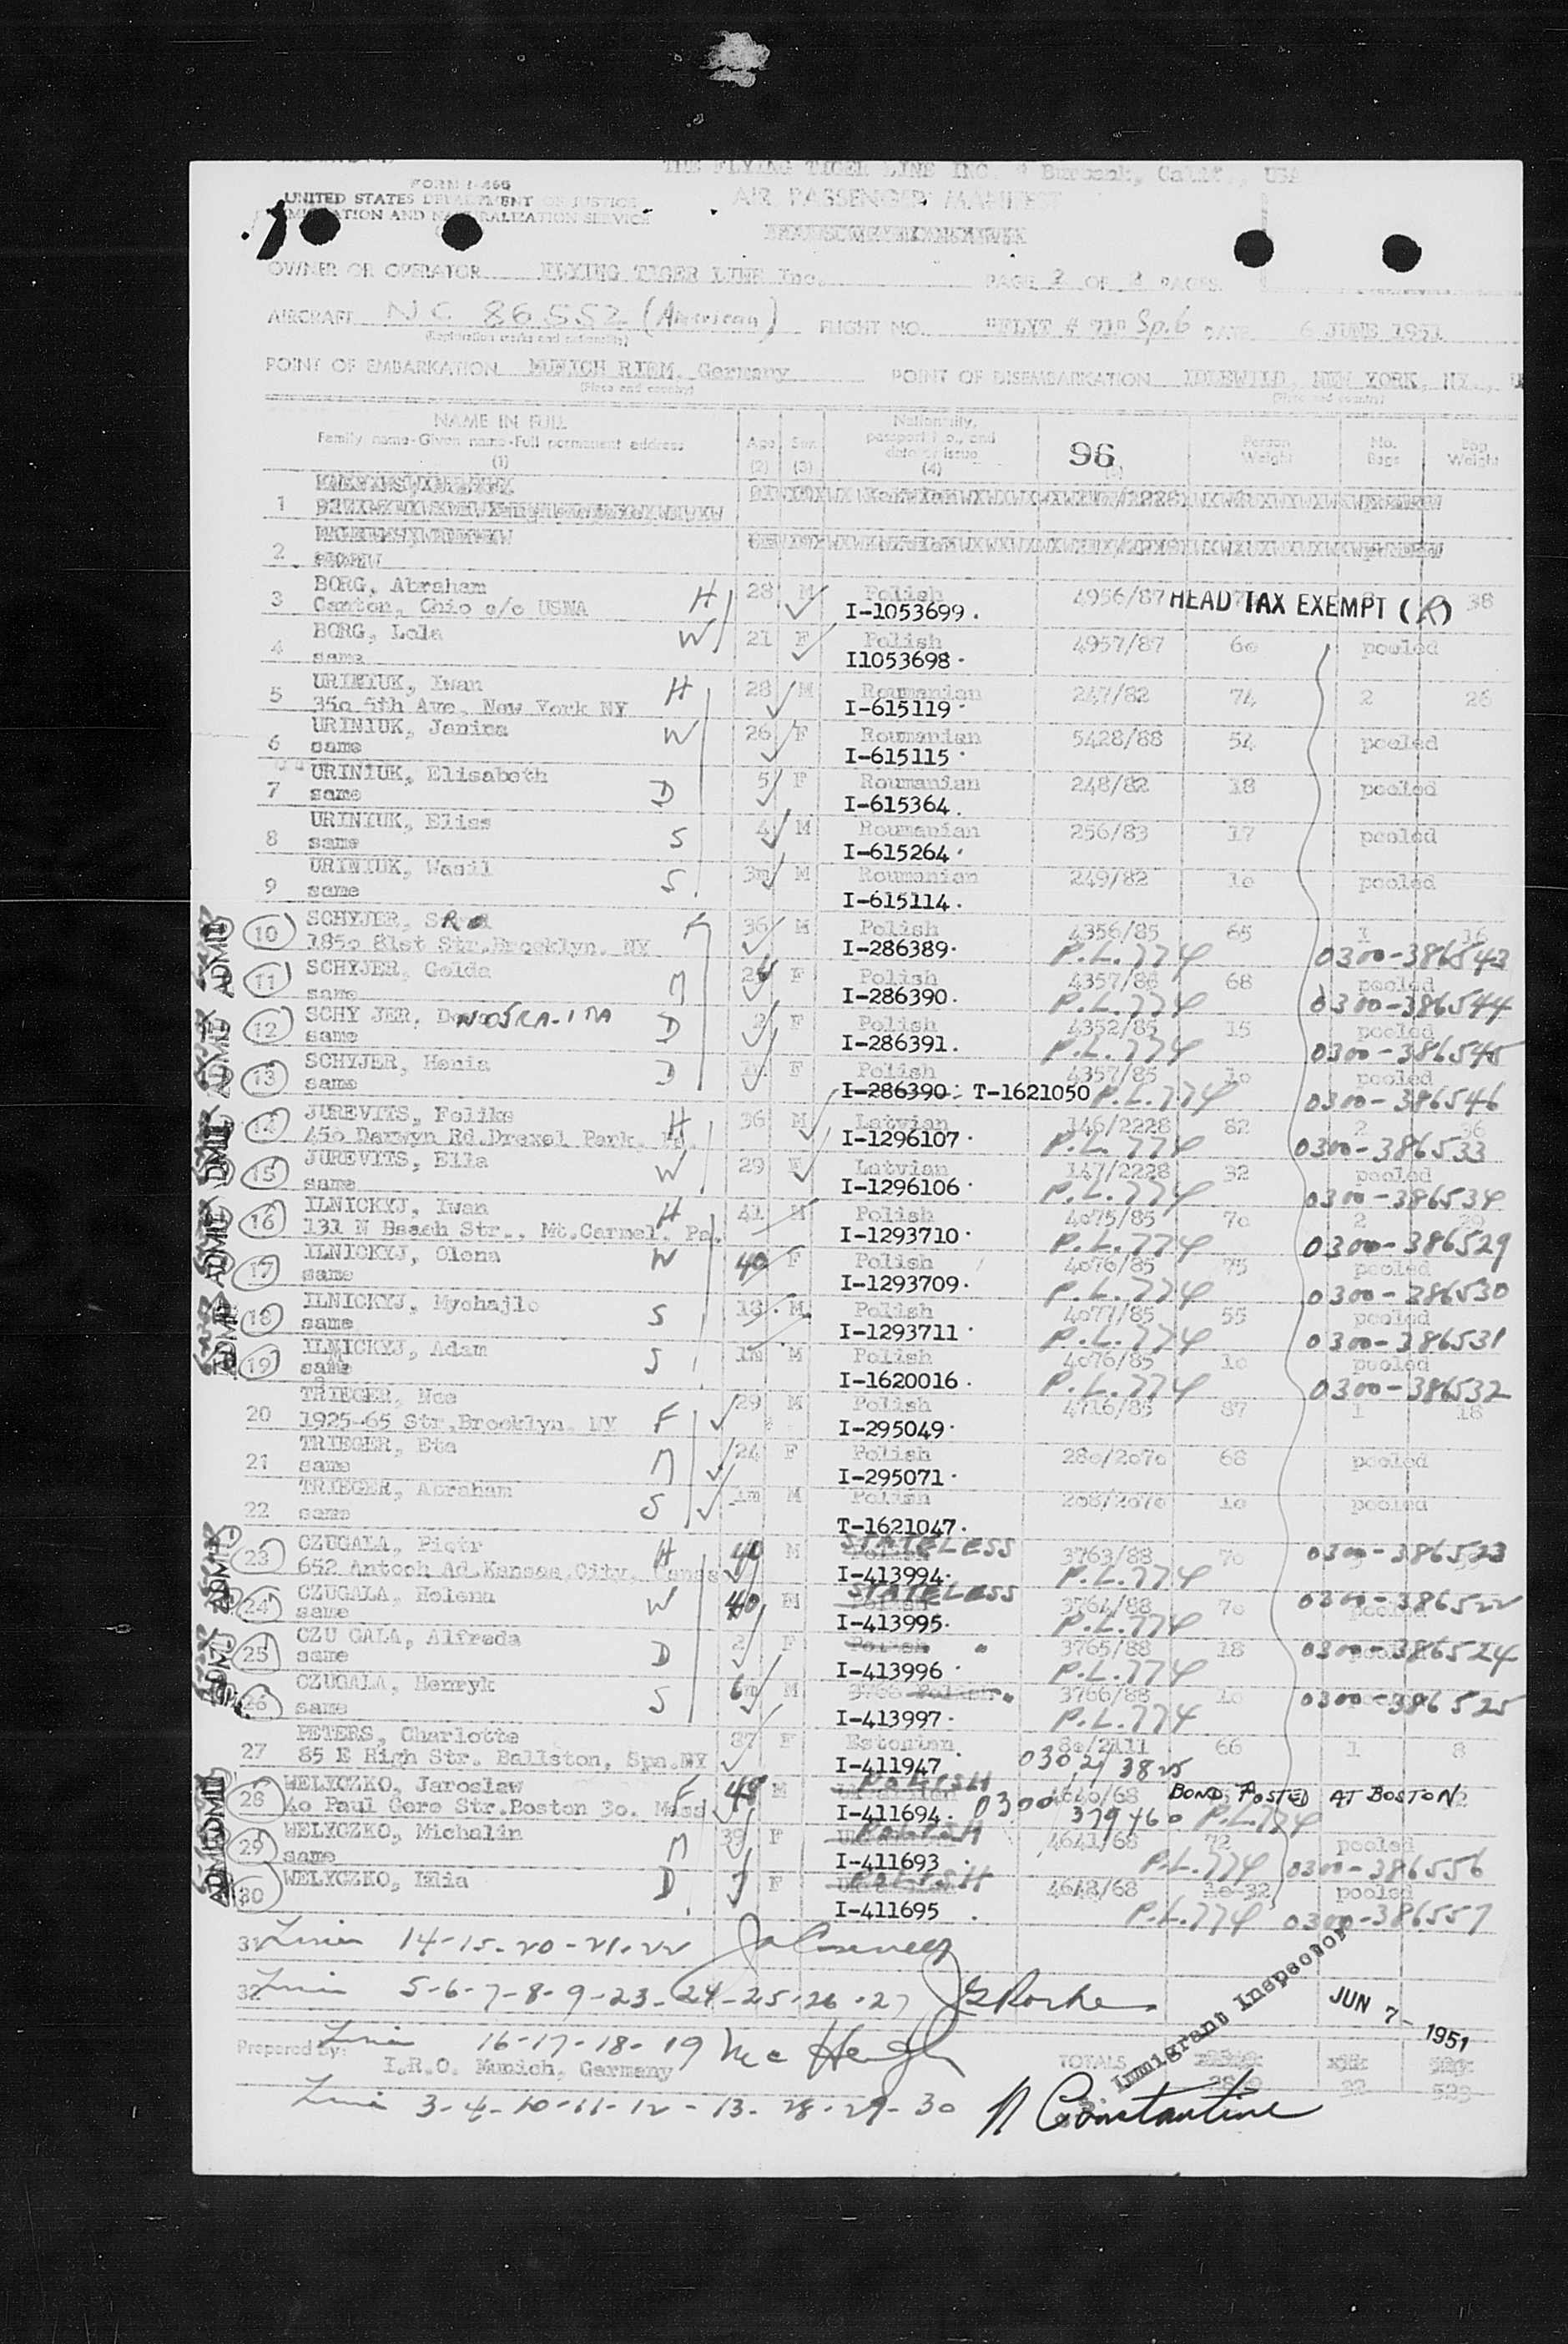 THE FLYING TIGER LINE INC. Burbank, Calif., USA
FORM I-466
UNITED STATES DEPARTMENT OF JUSTICE
IMMIGRATION AND NATURALIZATION SERVICE
AIR PASSENGER MANIFEST
OWNER OR OPERATOR FLYING TIGER LINE Inc. PAGE 2 OF PAGES
AIRCRAFT NC 86552 (American) FLIGHT NO. "FLYT # 71" Sp.6 DATE 6 JUNE 1951
(Registration marks and nationality)
POINT OF EMBARKATION MUNICH RIEM, Germany POINT OF DISEMBARKATION IDLEWILD, NEW YORK, NY.,
(Place and country) (Place and country)
NAME IN FULL Age Sex Nationality, 96 Person No. Bag
Family name-Given name-Full permanent address passport No., and Weight Bags Weight
(1) (2) (3) date of issue (4)
1
2
BORG, Abraham H 28 M Polish 4956/87 HEAD TAX EXEMPT (R) 38
3 Canton, Ohio c/o USNA I-1053699.
BORG, Lola W 21 F Polish 4957/87 6o pooled
4 same I1053698.
URINIUK, Iwan H 28 M Roumanian 247/82 74 2 26
5 35o 5th Ave. New York NY I-615119.
URINIUK, Janina W 26 F Roumanian 5428/88 54 pooled
6 same I-615115.
URINIUK, Elisabeth D 5 F Roumanian 248/82 18 pooled
7 same I-615364.
URINIUK, Elias S 4 M Roumanian 256/83 17 pooled
8 same I-615264.
URINIUK, Wasil S 3m M Roumanian 249/82 1o pooled
9 same I-615114.
ADMIT
SCHYJER, F 36 M Polish 4356/85 65 1 16
10 185o 81st Str.Brooklyn. NY I-286389. P.L.774 0300-386543
SCHYJER, Golda M F Polish 4357/86 68 pooled
11 same I-286390. P.L.774 0300-386544
SCHY JER, D 2 F Polish 4352/85 15 pooled
12 same I-286391. P.L.774 0300-386545
SCHYJER, Henia D F Polish 4357/85 1o pooled
13 same I-286390. T-1621050 P.L.774 0300-386546
JUREVITS, Feliks H 36 M Latvian 146/2228 82 2 36
14 45o Darwyn Rd.Drexel Park, I-1296107. P.L.774 0300-386533
JUREVITS, Ella W 29 F Latvian 147/2228 32 pooled
15 same I-1296106. P.L.774 0300-386534
ILNICKYJ, Iwan H 41 M Polish 4075/85 7o 2
16 131 N Beach Str., Mt.Carmel. Pa. I-1293710. P.L.774 0300-386529
ILNICKYJ, Olena W 40 F Polish 4076/85 75 pooled
17 same I-1293709. P.L.774 0300-386530
ILNICKYJ, Mychajlo S 18 M Polish 4077/85 55 pooled
18 same I-1293711. P.L.774 0300-386531
ILNICKYJ, Adam S 1m M Polish 4076/85 1o pooled
19 same I-1620016. P.L.774 0300-386532
TRIEGER, Noe F 29 M Polish 4716/85 87 1 18
20 1925-65 Str.Brooklyn. NY I-295049.
TRIEGER, Eta M 24 F Polish 28o/207o 68 pooled
21 same I-295071.
TRIEGER, Abraham S 1m M Polish 2o8/207o 1o pooled
22 same T-1621047.
CZUGALA, Piotr H 40 M STATELESS 3763/88 7o 0300-386523
23 652 Antoch Ad.Kansas City. Kansas I-413994. P.L.774
CZUGALA, Helena W 40 M STATELESS 3764/88 7o 0300-386522
24 same I-413995. P.L.774
CZU GALA, Alfreda D 2 F Polish " 3765/88 18 0300-386524
25 same I-413996. P.L.774
CZUGALA, Henryk S 6m M 3766 Polish " 3766/88 1o 0300-386525
26 same I-413997. P.L.774
PETERS, Charlotte 37 F Estonian 8o/2111 66 1 8
27 85 E High Str. Ballston, Spa.NY I-411947.
WELYCZKO, Jaroslaw F 48 M POLISH 464o/68 BOND POSTED AT BOSTON
28 4o Paul Gore Str.Boston 3o. Mass I-411694. 0300 379460 P.L.774
WELYCZKO, Michalin M 39 F POLISH 4641/68 72 pooled
29 same I-411693 P.L.774 0300-386556
WELYCZKO, Idia D 7 F POLISH 4642/68 32 pooled
30 I-411695 P.L.774 0300-386557
31 Lines 14-15-20-21-22
32 Lines 5-6-7-8-9-23-24-25-26-27 Rorke
Immigrant Inspector
JUN 7 - 1951
Lines 16-17-18-19 McHugh
Prepared by: I.R.O. Munich, Germany TOTALS 32 523
Lines 3-4-10-11-12-13-28-29-30 N Constantine